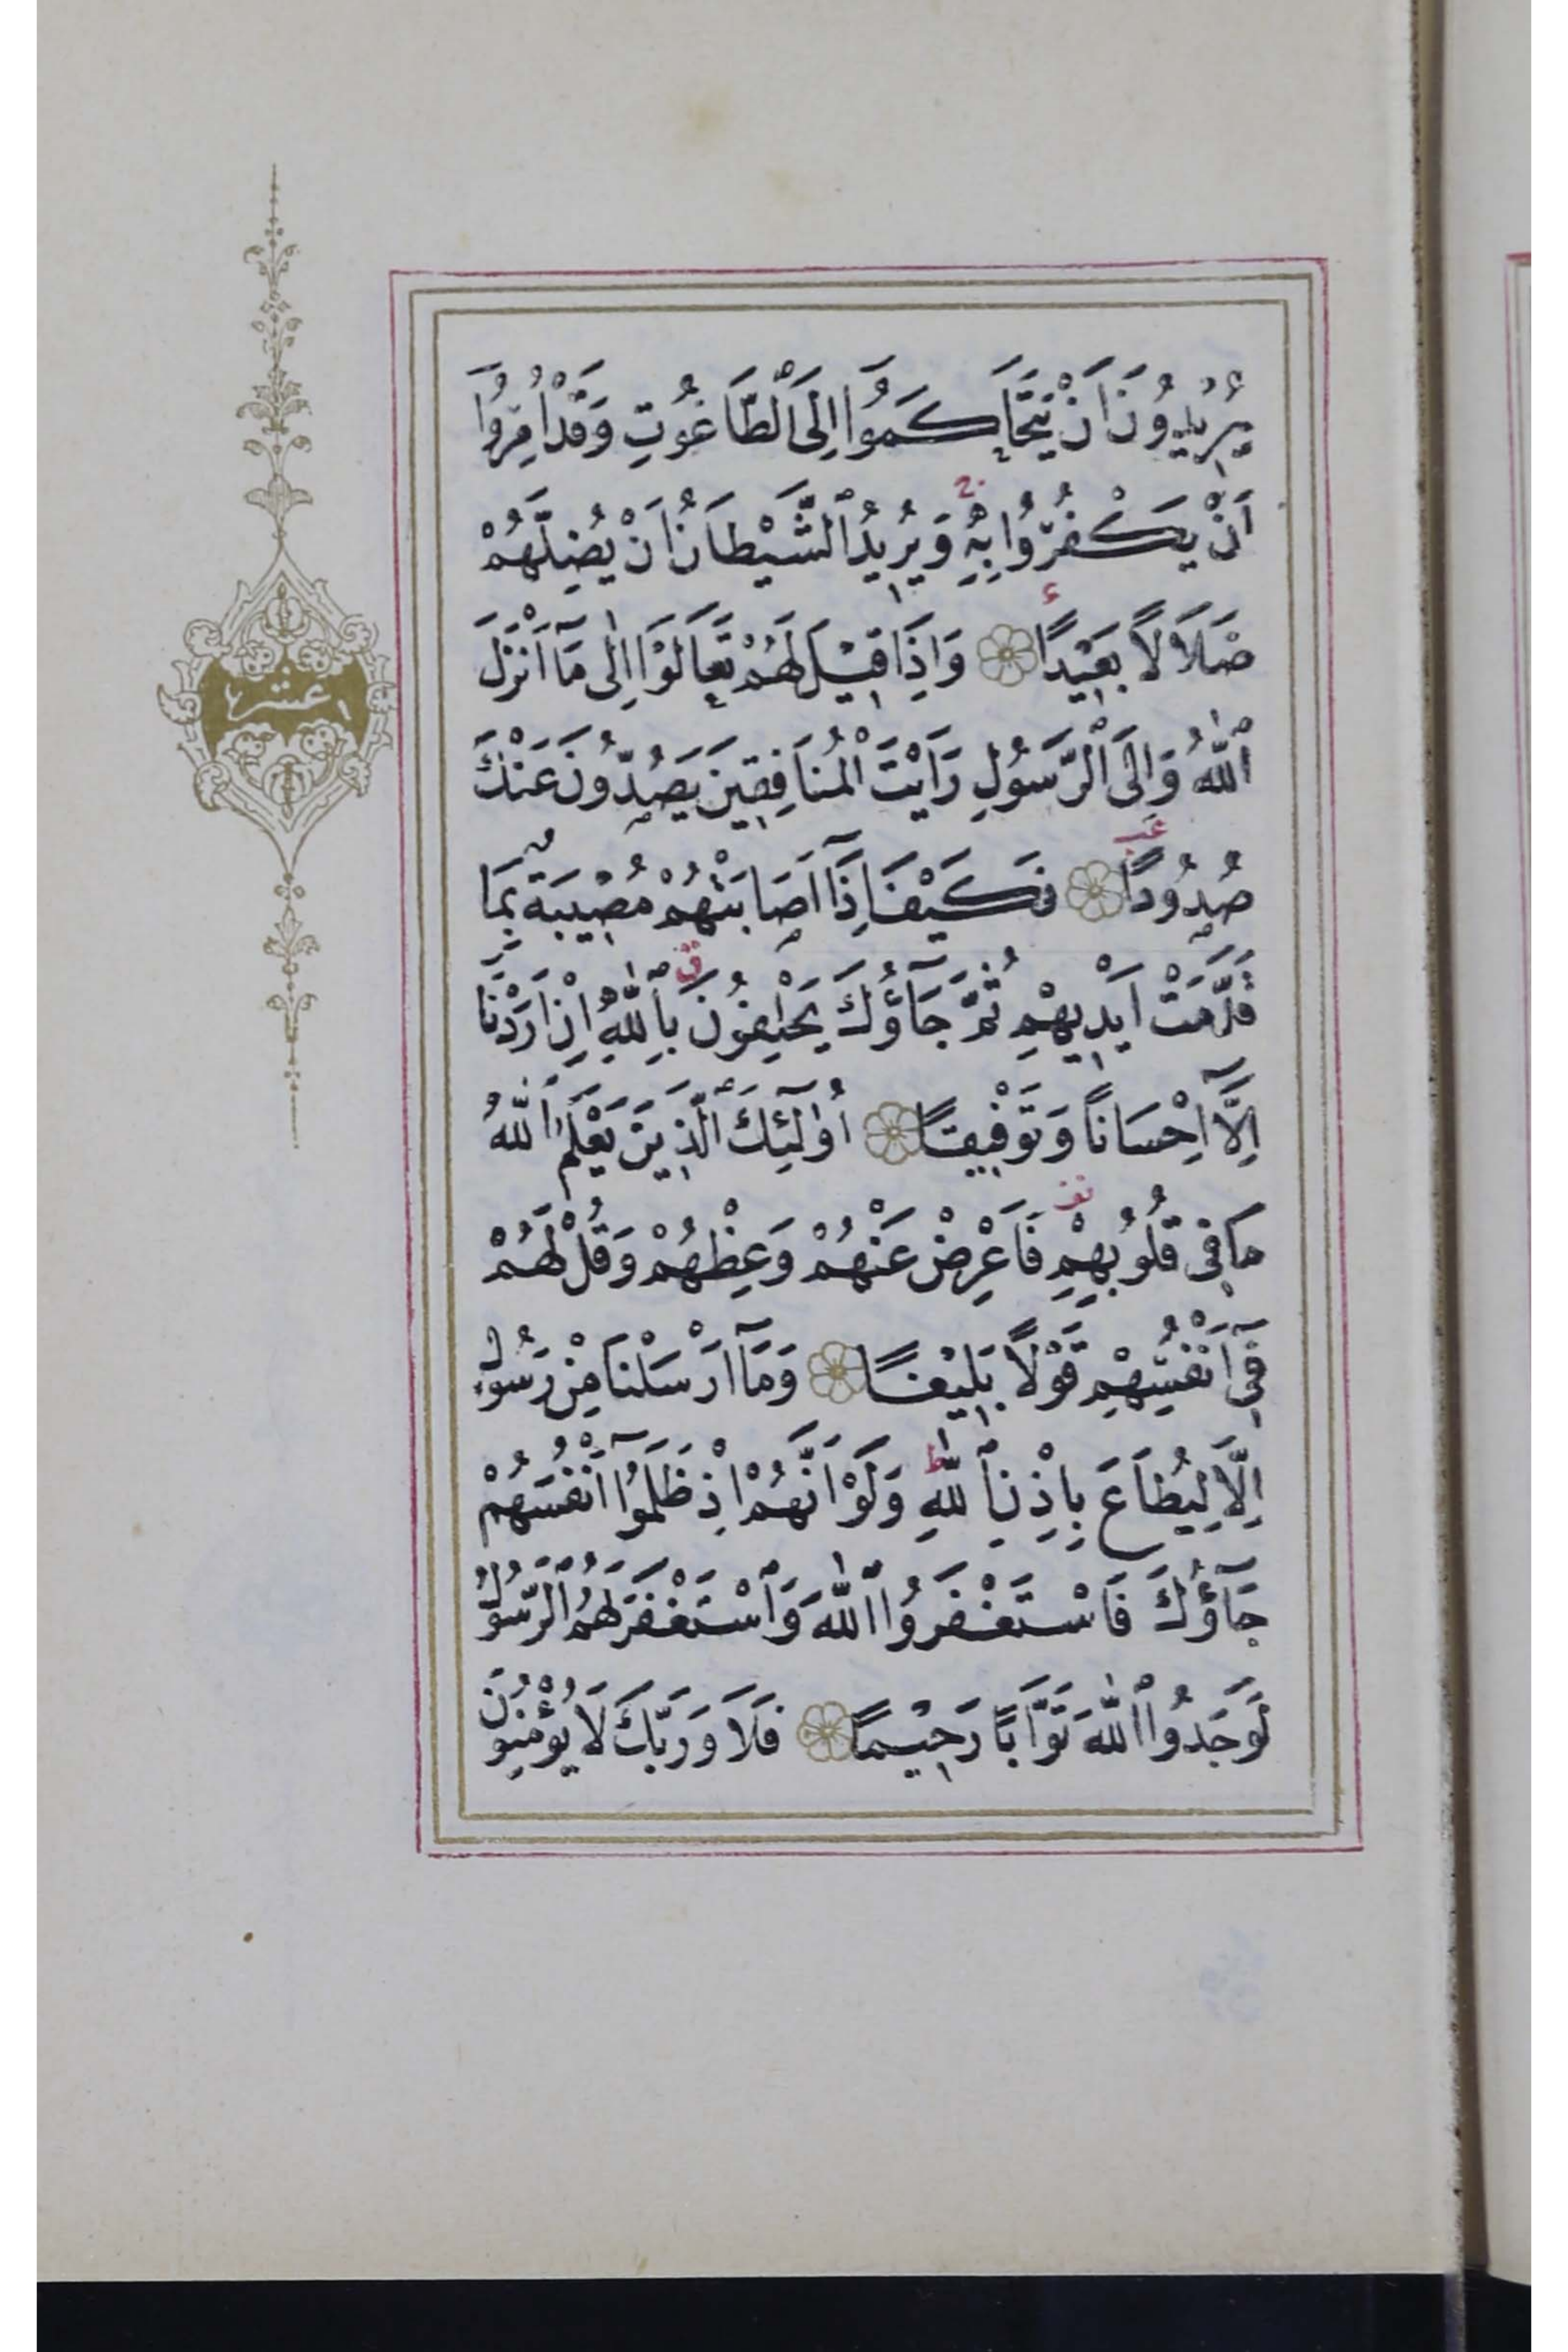 يُرِيدُونَ اَنْ يَتَحَاكَمُوا اِلَى ٱلطَّاغُوتِ وَقَدْ اُمِرُوا
اَنْ يَكْفُرُوا بِهِ وَيُرِيدُ ٱلشَّيْطَانُ اَنْ يُضِلَّهُمْ
ضَلَالًا بَعِيدًا وَاِذَا قِيلَ لَهُمْ تَعَالَوْا اِلٰى مَٓا اَنْزَلَ
عشر
ٱللّٰهُ وَاِلَى ٱلرَّسُولِ رَاَيْتَ ٱلْمُنَافِقِينَ يَصُدُّونَ عَنْكَ
صُدُودًا فَكَيْفَ اِذَٓا اَصَابَتْهُمْ مُصِيبَةٌ بِمَا
قَدَّمَتْ اَيْدِيهِمْ ثُمَّ جَٓاؤُكَ يَحْلِفُونَ بِٱللّٰهِ اِنْ اَرَدْنَٓا
اِلَّٓا اِحْسَانًا وَتَوْفِيقًا اُو۬لٰٓئِكَ ٱلَّذِينَ يَعْلَمُ ٱللّٰهُ
مَا فِى قُلُوبِهِمْ فَاَعْرِضْ عَنْهُمْ وَعِظْهُمْ وَقُلْ لَهُمْ
فِٓى اَنْفُسِهِمْ قَوْلًا بَلِيغًا وَمَٓا اَرْسَلْنَا مِنْ رَسُولٍ
اِلَّا لِيُطَاعَ بِاِذْنِ ٱللّٰهِ وَلَوْ اَنَّهُمْ اِذْ ظَلَمُٓوا اَنْفُسَهُمْ
جَٓاؤُكَ فَاسْتَغْفَرُوا ٱللّٰهَ وَٱسْتَغْفَرَ لَهُمُ ٱلرَّسُولُ
لَوَجَدُوا ٱللّٰهَ تَوَّابًا رَحِيمًا فَلَا وَرَبِّكَ لَا يُؤْمِنُونَ